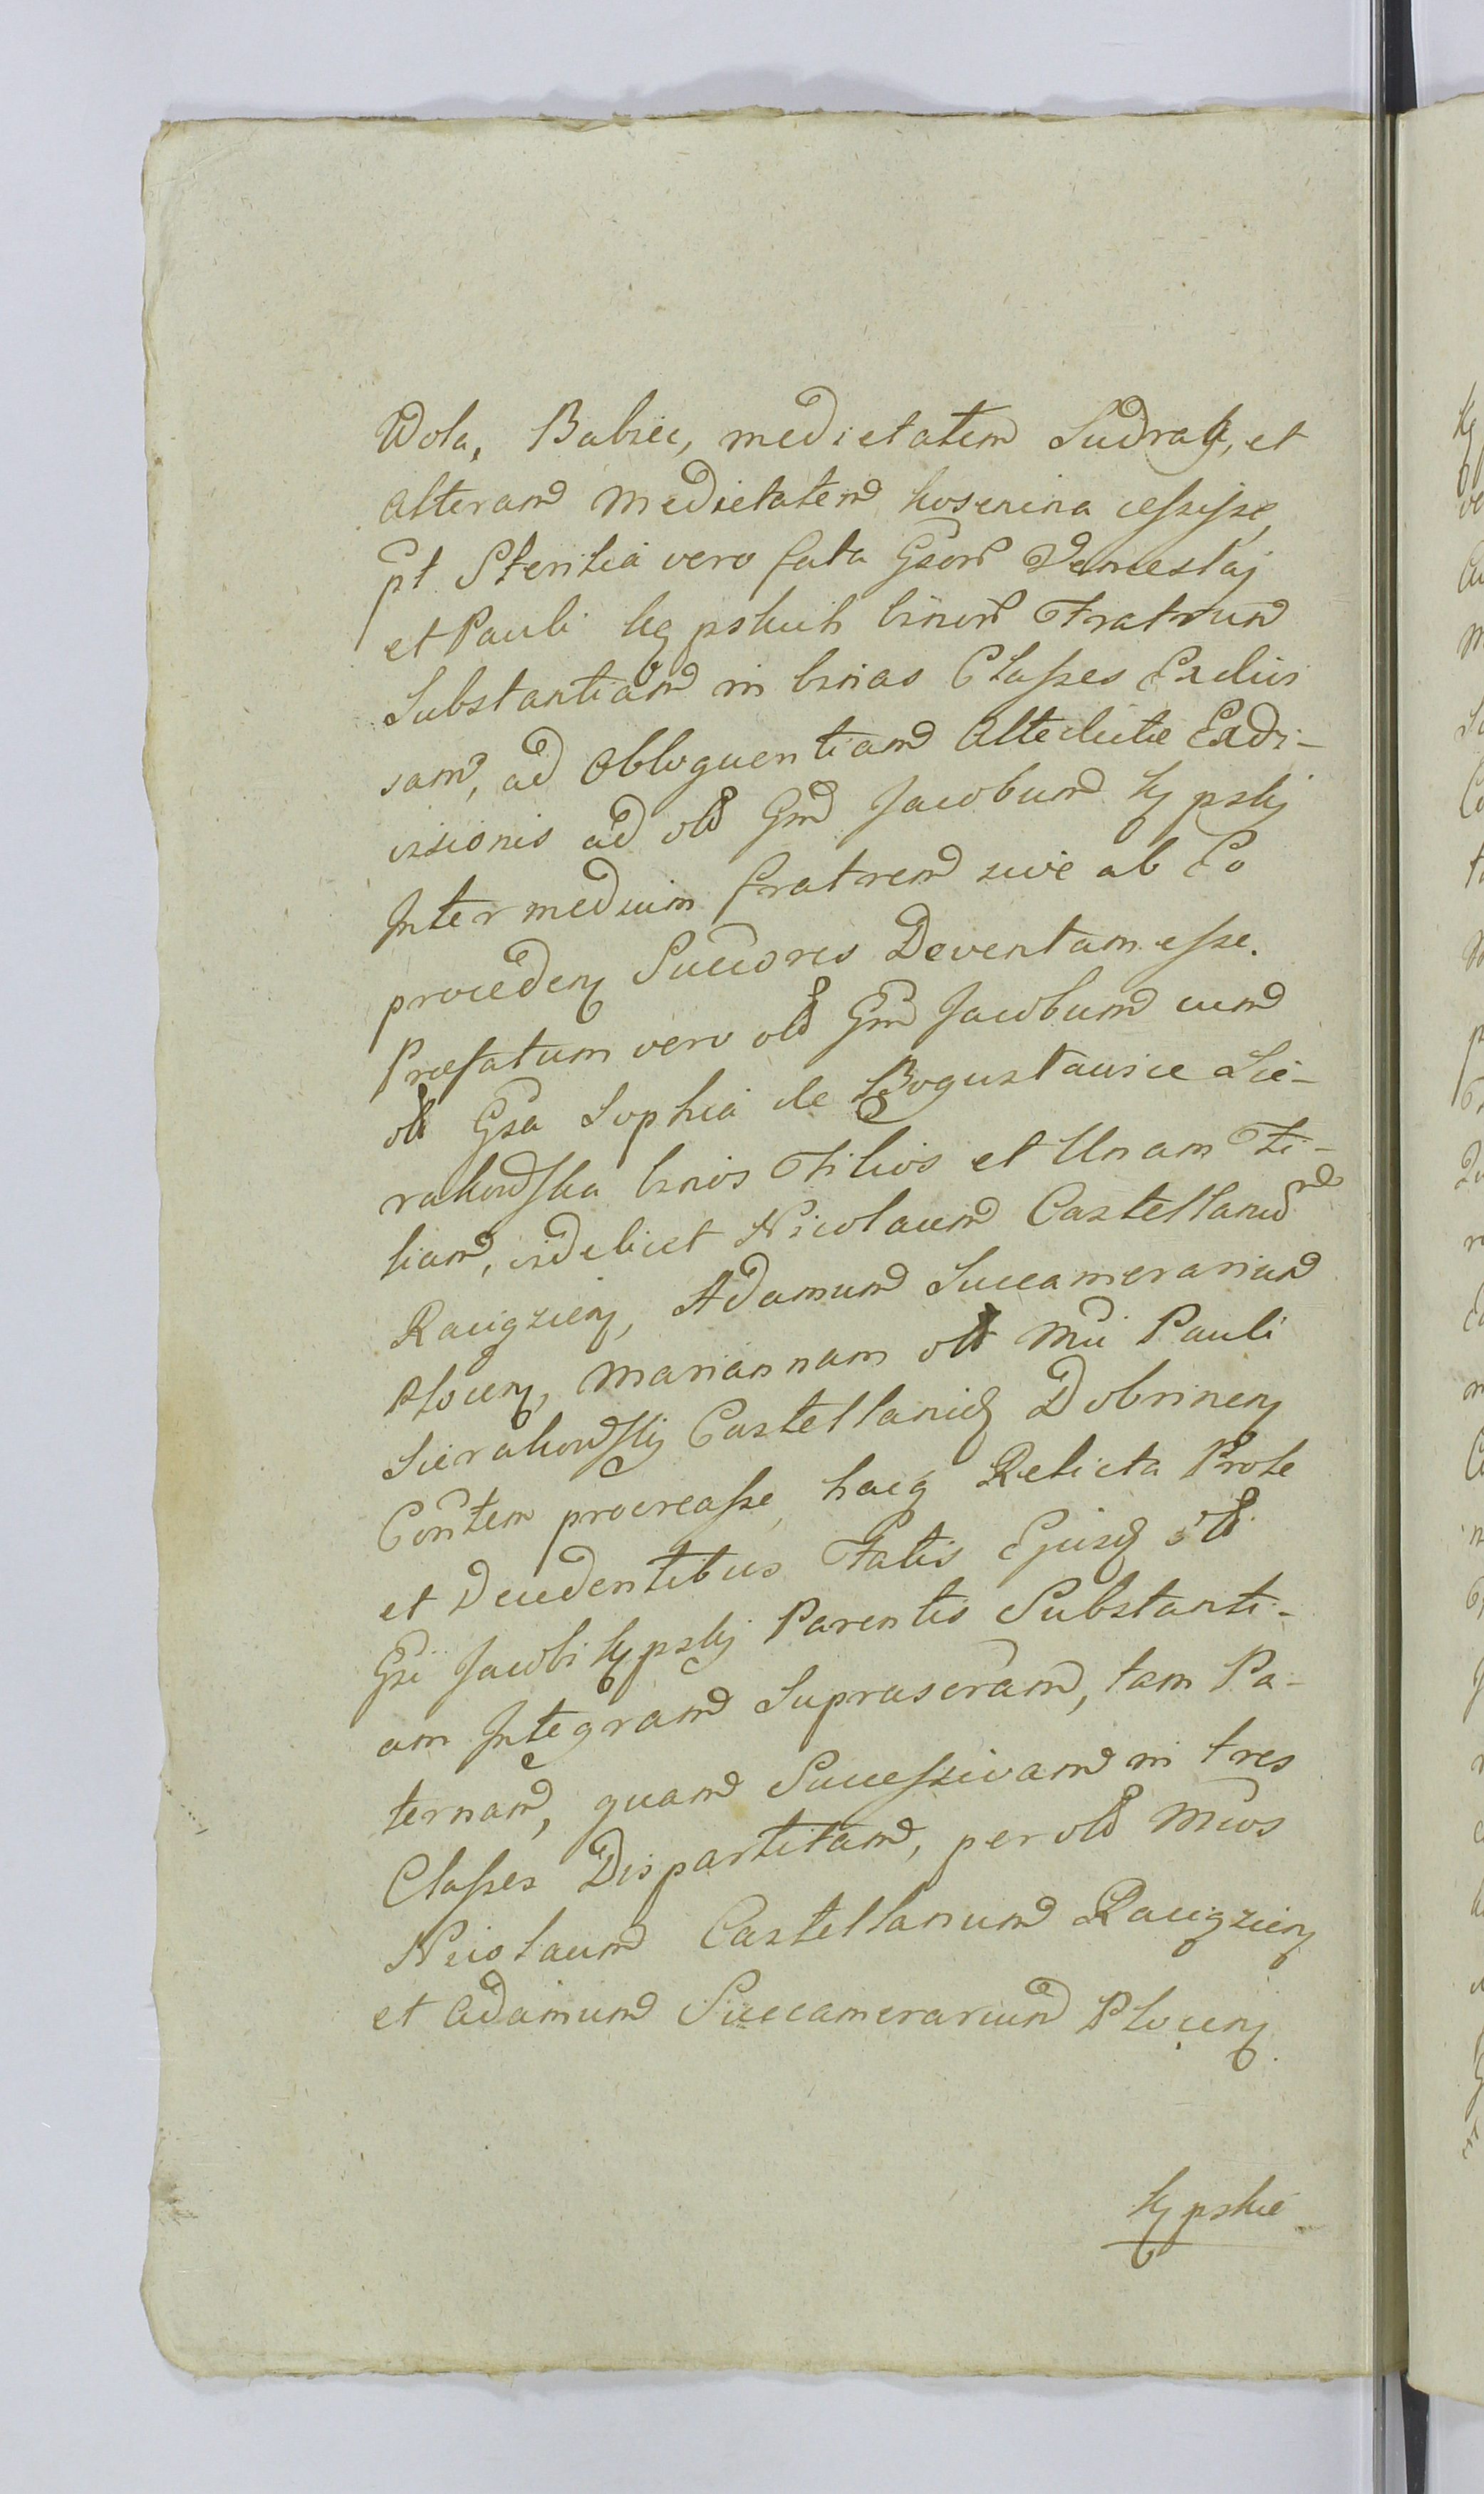 Wola, Babiec, medietatem Sudragÿ, et
alteram medietatem Kosemina cessisse,
pt Sterilia vero fata Gsor Venceslaj
et Pauli Kępskich binor Fratrum
Substantiam in binas Classes Exdivi
sam, ad obloquentiam Altedictae Exdi-
visionis ad olb Gm Jacobum Kępskj
Intermedium fratrem sive ab Eo
proceden Succores Deventam esse.
Praefatum vero olb Gm Jacobum cum
olb Gsa Sophia de Bogustawice Sie-
rakowska binos Filios et Unam Fi-
liam, videlicet Nicolaum Castellanum
Raciązien, Adamum Succamerarium
Plocen, Mariannam olb Mci Pauli
Sierakowskj Castellanid Dobrinen
Contem procreasse, hacq Relicta Prole
et Decedentibus Fatis Ejusd olb
Gsi Jacobi Kępskj Parentis Substanti-
am Integram Suprascram, tam Pa-
ternam, quam Successivam in tres
Classes Dispartitam, per olb Mcos
Nicolaum Castellanum Raciązien
et Adamum Succamerarium Plocen
Kępskie